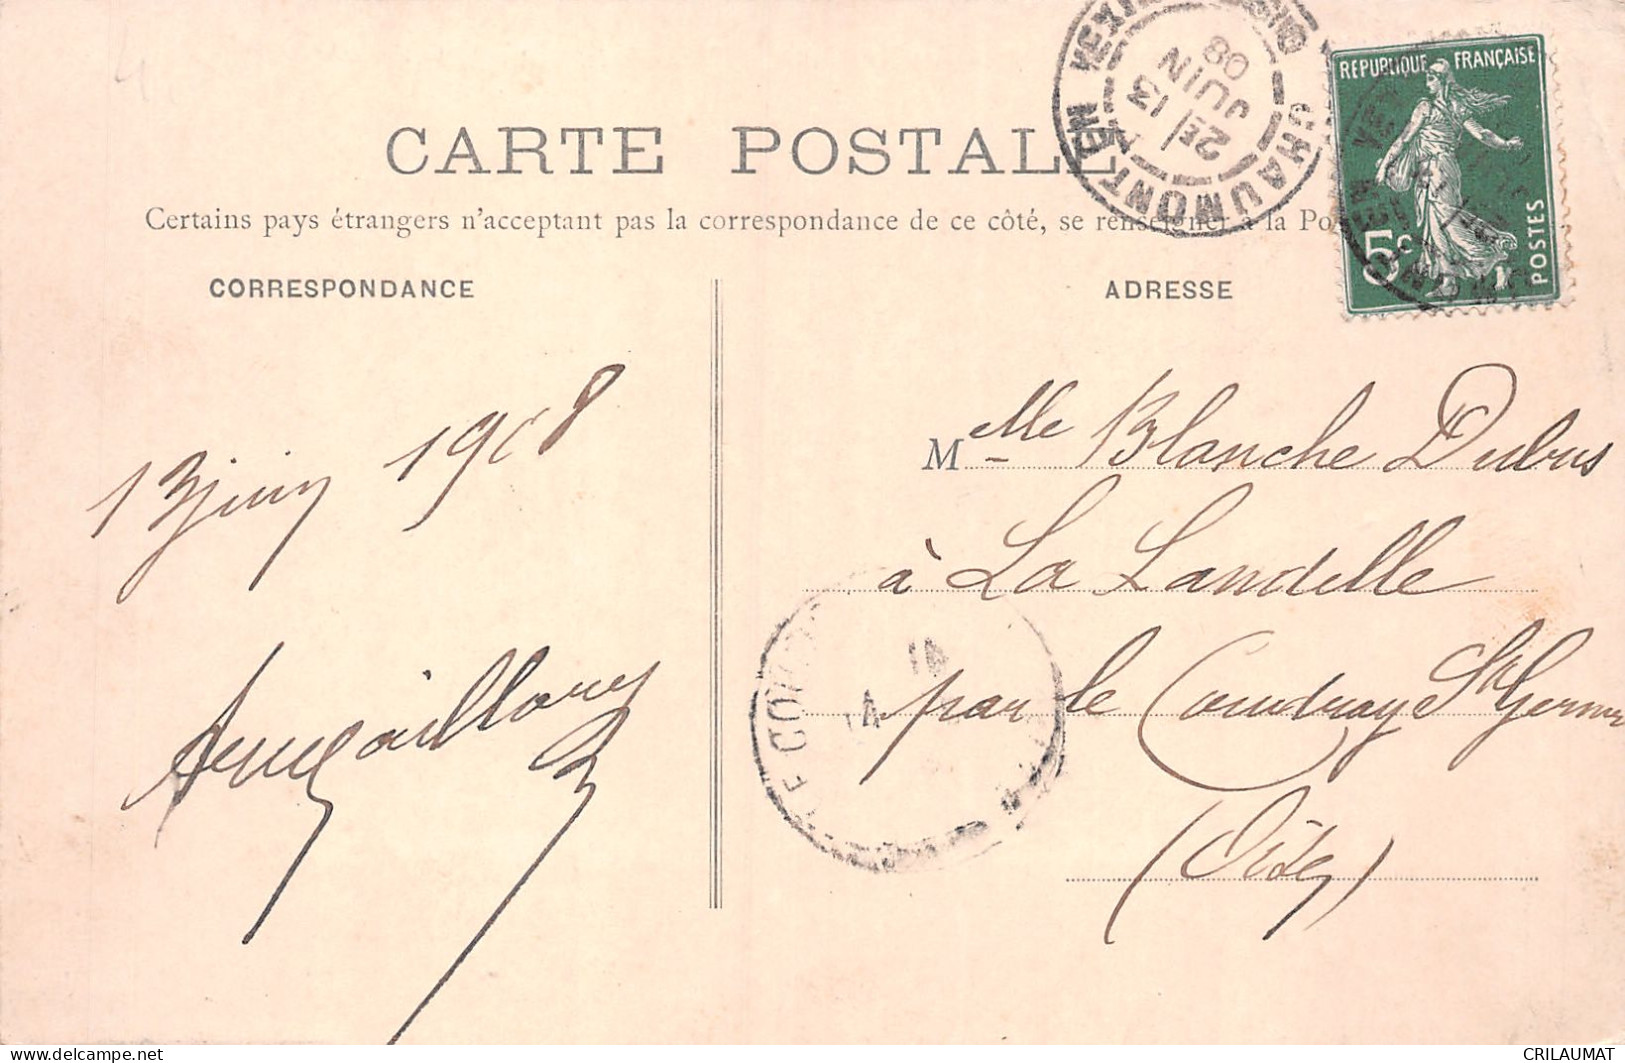 CARTE POSTALE
Certains pays étrangers n'acceptant pas la correspondance de ce côté, se renseigner à la Po
CORRESPONDANCE
ADRESSE
CHAUMONT EN VEXIN
2E / 13
JUIN
08
REPUBLIQUE FRANÇAISE
5c
POSTES
13 juin 1908
Melle Blanche Dubus
à La Landelle
par le Coudray St Germer
(Oise)
LE COU
14
14
CRILAUMAT